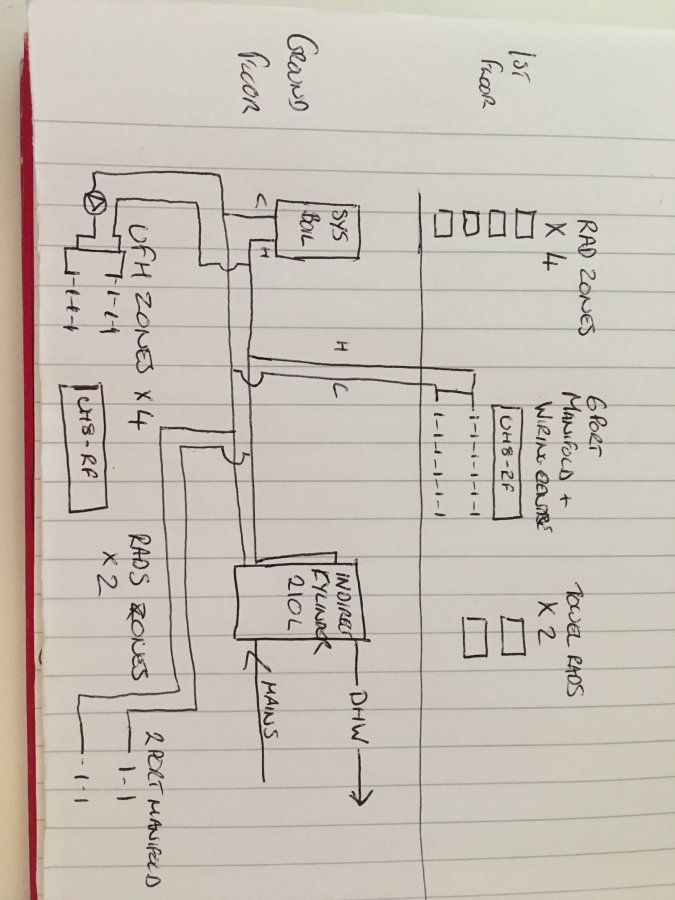 1ST
FLOOR
RAD ZONES
X 4
6 PORT
MANIFOLD +
WIRING CENTRE
UH8-RF
TOWEL RADS
X 2
GROUND
FLOOR
SYS
BOIL
C
H
H
C
UFH ZONES X 4
UH8-RF
RADS ZONES
X 2
2 PORT MANIFOLD
INDIRECT
CYLINDER
210L
MAINS
DHW